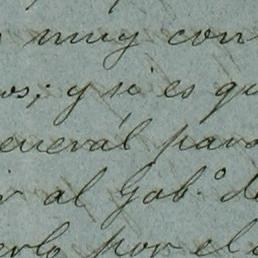 muy con
os; y si es qu
eneral para
ir al Gob.º de
erlo por el